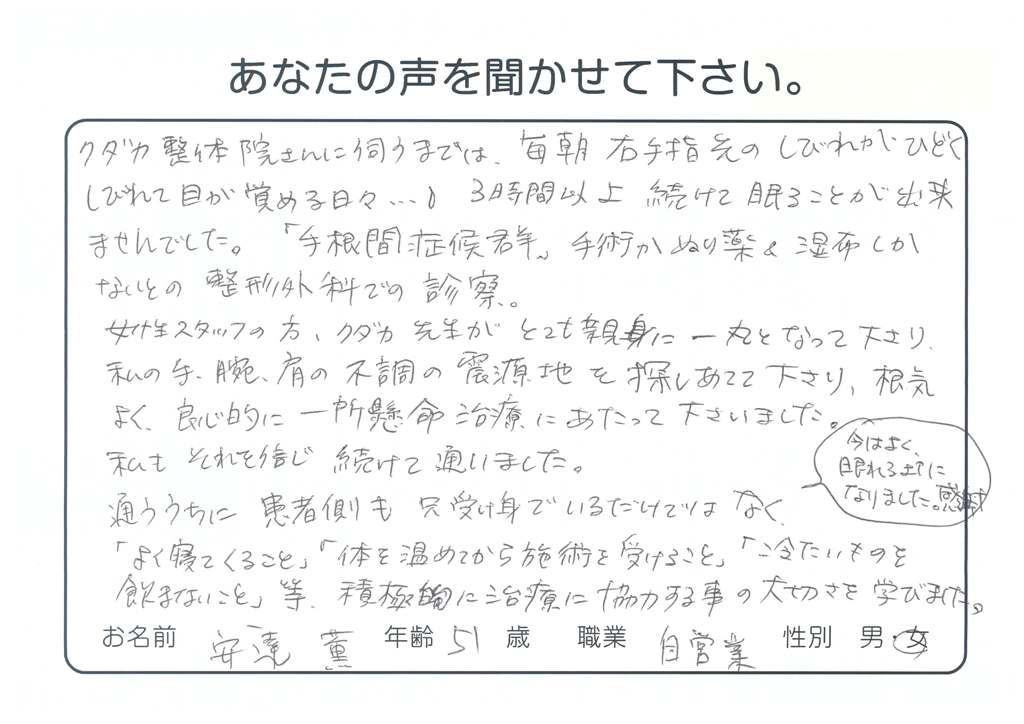 あなたの声を聞かせて下さい。
クダカ整体院さんに伺うまでは、毎朝 右手指先の しびれがひどく
しびれて目が覚める日々…。 3時間以上 続けて 眠ることが出来
ませんでした。「手根間症候群」 手術か ぬり薬&湿布しか
ないとの 整形外科での 診察。
女性スタッフの方、クダカ先生が とても親身に 一丸となって下さり、
私の手、腕、肩の不調の震源地を探しあてて下さり、根気
よく、良心的に 一所懸命 治療にあたって下さいました。
私も それを信じ 続けて通いました。
通ううちに 患者側も 只受け身でいるだけではなく、
「よく寝てくること」「体を温めてから施術を受けること」「冷たいものを
飲まないこと」等、積極的に治療に協力する事の大切さを学びました。
今はよく、
眠れる出に
なりました。感謝
お名前 安達 薫 年齢 51 歳 職業 自営業 性別 男・女